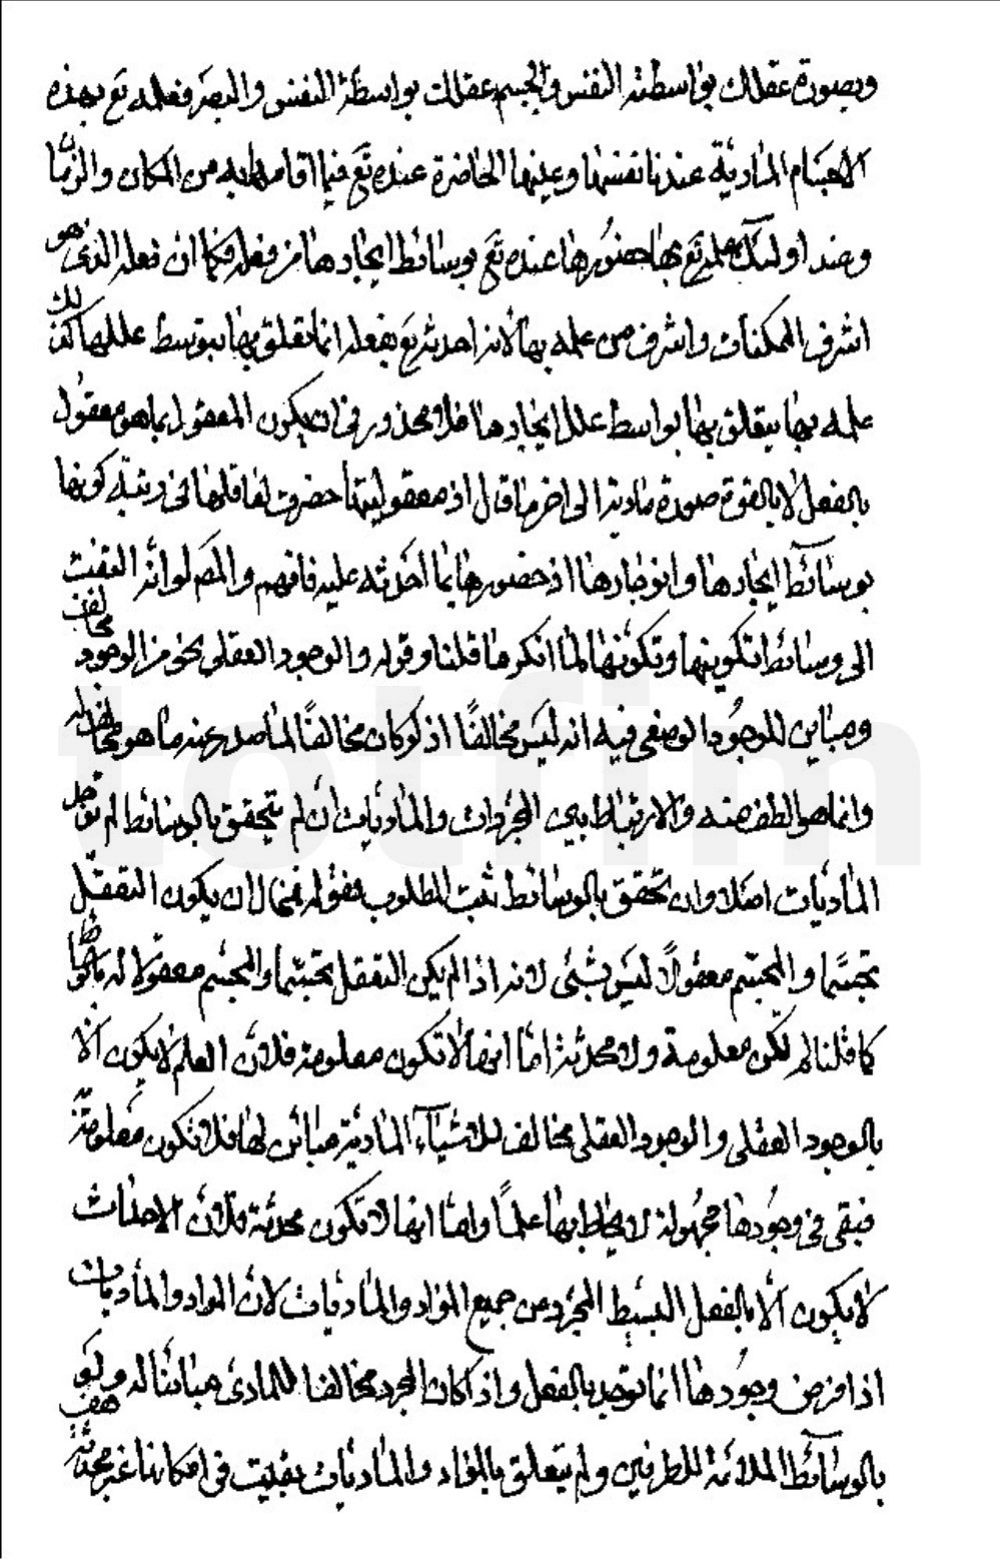 وبصورة عقلك بواسطة النفس والجسم عقلك بواسطة النفس والبصر فعلمه تع بهذه
الاجسام المادية عندنا نفسها وعينها الحاضرة عنده تع فيما اقامها به من المكان والزمان
وضد اولئك علمه تع بها حضورها عنده تع بوسائط ايجادها من فعله فكما ان فعله الذى هو
اشرف الممكنات واشرف من علمه بها لانه احدثه تع بفعله انما تعلق بها بتوسط عللها كذلك
علمه بها يتعلق بها بواسط علل ايجادها فلا محذور فى ان يكون المعقول بما هو معقول
بالفعل لا بالقوة صورة مادية الى اخر ما قال اذ معقوليتها حضرت لعاقلها فى رتبة كونها
بوسائط ايجادها وانوجادها اذ حضورها بما احدثه عليه فافهم والمص لو انه التفت
الى وسائط تكوينها وتكونها لما انكر ما قلنا وقوله والوجود العقلى نحو من الوجود مخالف
ومباين للوجود الوضعى فيه انه ليس مخالفًا اذ لو كان مخالفًا لما صدر عنه ما هو مخالف له
وانما هو الطف منه والارتباط بين المجردات والماديات ان لم يتحقق بالوسائط لم توجد
الماديات اصلا وان تحقق بالوسائط ثبت المطلوب فقوله فمحال ان يكون التعقل
تجسّمًا والتجسّم معقولًا ليس بشىء لانه اذا لم يكن التعقل تجسّما والتجسّم معقولا له
كما قلنا لم تكن معلومة ولا محدثة امّا انها لا تكون معلومة فلانّ العلم لا يكون الّا
بالوجود العقلى والوجود العقلى مخالف للاشياء المادية مباين لها فلا تكون معلومة
فبقى فى وجودها مجهولة لا يحاط بها علمًا وامّا انها لا تكون محدثة فلانّ الاحداث
لا يكون الّا بالفعل البسيط المجرد عن جميع المواد والماديات لانّ المواد والماديات
اذا فرض وجودها انما توجد بالفعل واذا كان المجرد مخالفا للمادى مباينًا له ولو
بالوسائط الملائمة للطرفين ولم يتعلق بالمواد والماديات بقيت فى امكاناتها غير محدثة هف